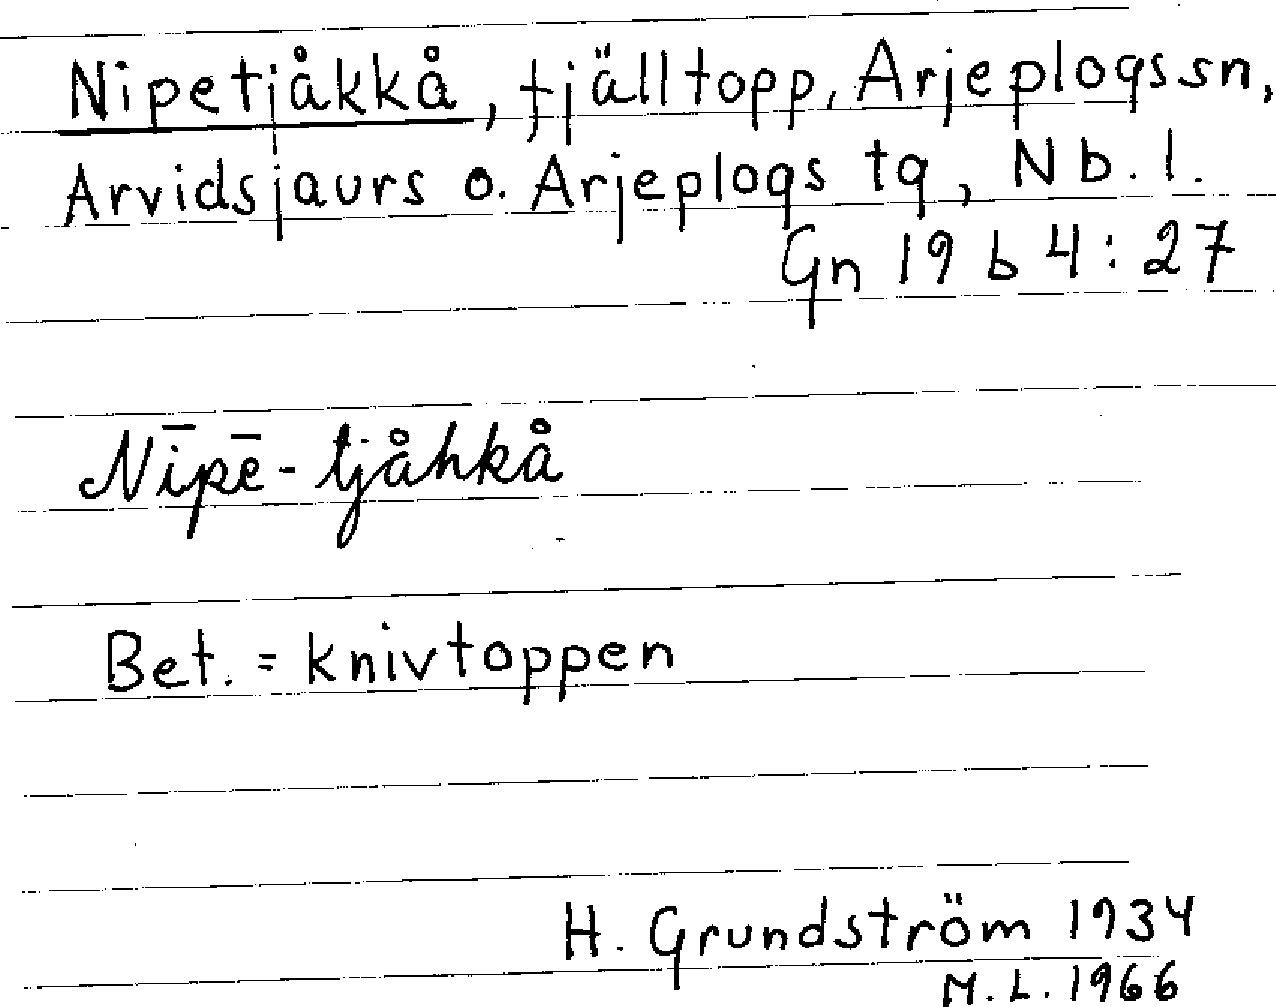 Nipetjåkkå, fjälltopp, Arjeplogs sn,
Arvidsjaurs o. Arjeplogs tg, Nb. l.
Gn 19 b 4:27
Nīpē-tjåhkå
Bet. = knivtoppen
H. Grundström 1934
M. L. 1966